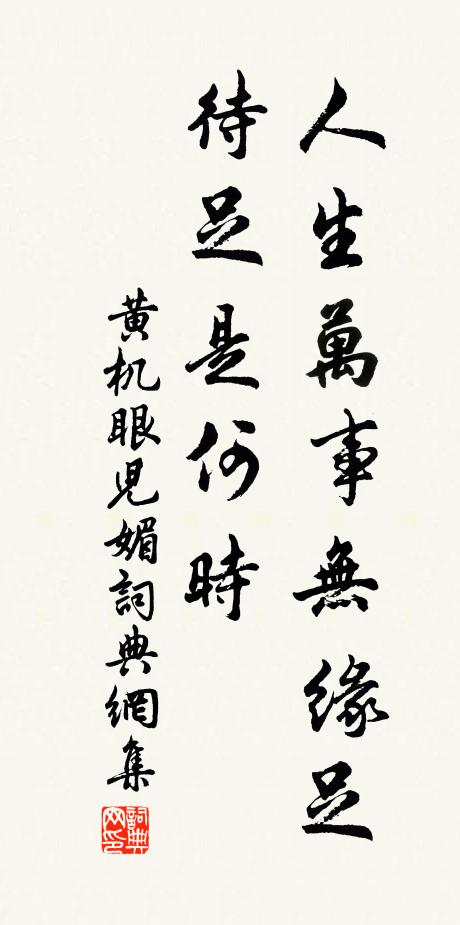 人生萬事無緣足
待足是何時
黄机眼兒媚詞典網集
詞典網印